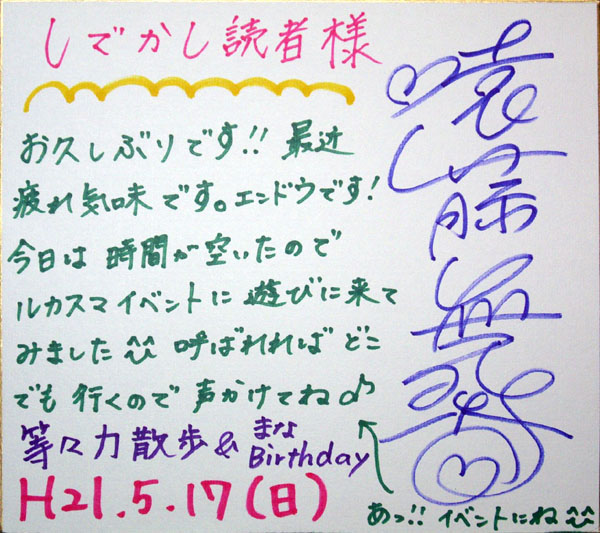 しでかし読者様
お久しぶりです!! 最近
疲れ気味です。エンドウです!
今日は時間が空いたので
ルカスマイベントに遊びに来て
みました^^ 呼ばれればどこ
でも行くので声かけてね♪
等々力散歩&まな
Birthday
H21.5.17(日)
あっ!! イベントにね^^